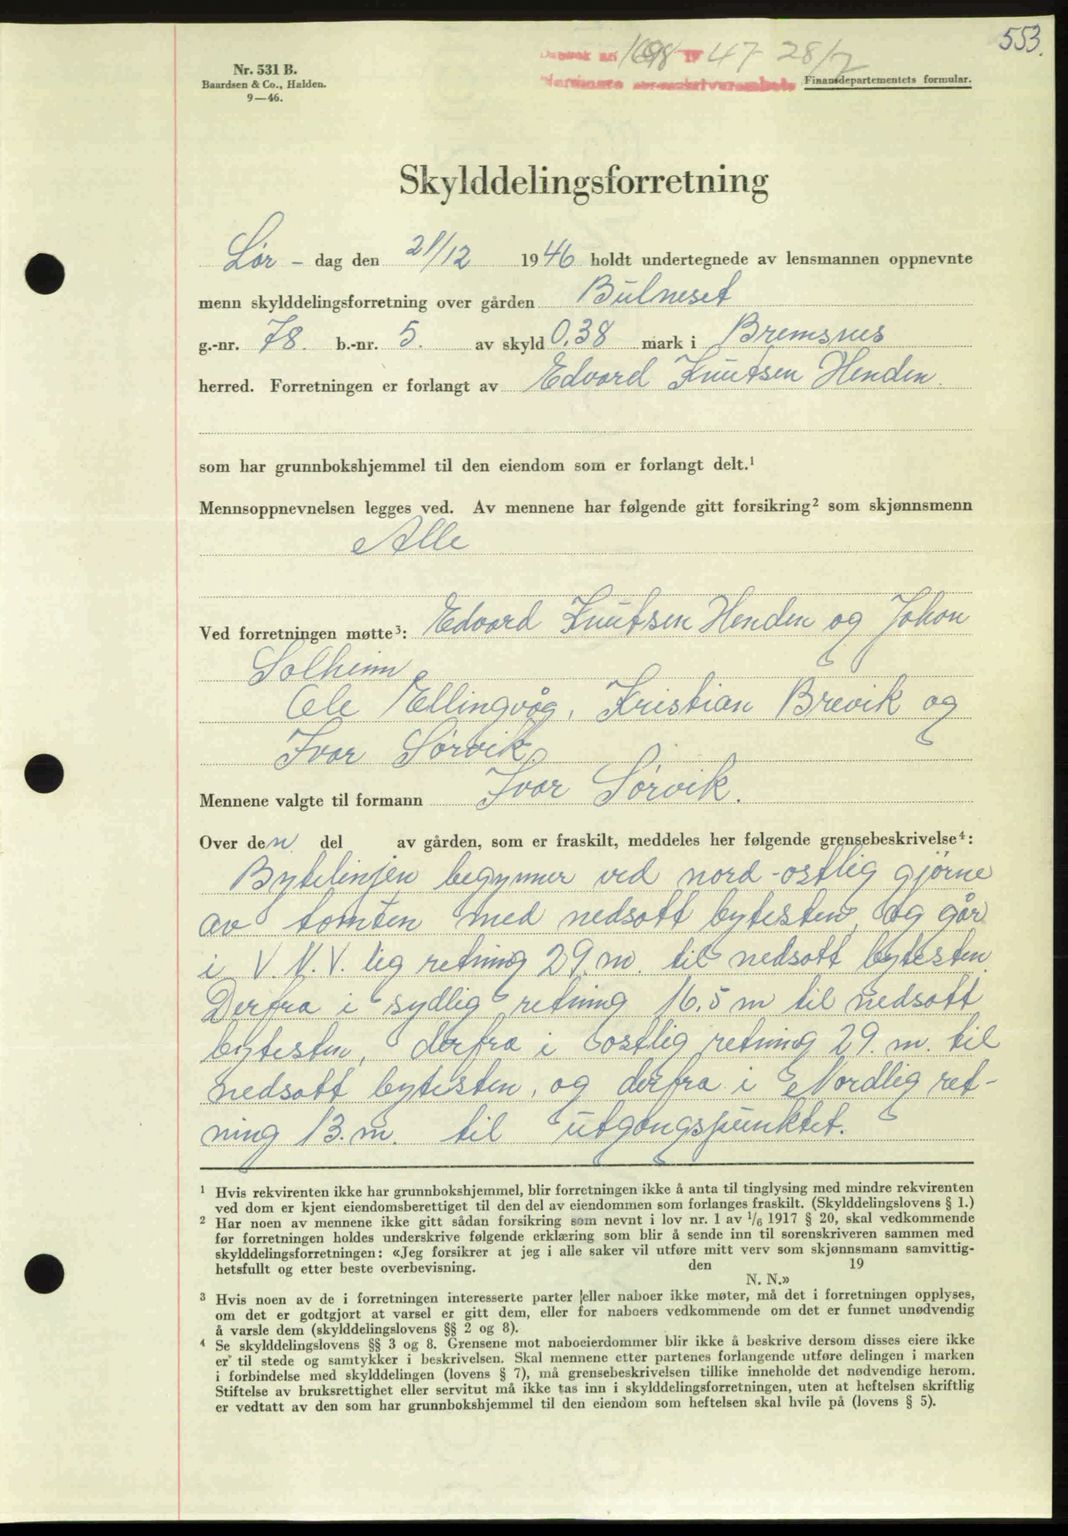 553.
Dagbok nr. 1698 19 47 28/7
Nordmøre sorenskriverembete
Nr. 531 B.
Baardsen & Co., Halden.
9—46.
Finansdepartementets formular.
Skylddelingsforretning
Lør - dag den 21/12 1946 holdt undertegnede av lensmannen oppnevnte
menn skylddelingsforretning over gården Bulneset
g.-nr. 78. b.-nr. 5. av skyld 0,38 mark i Bremsnes
herred. Forretningen er forlangt av Edvard Knutsen Henden.
som har grunnbokshjemmel til den eiendom som er forlangt delt.¹
Mennsoppnevnelsen legges ved. Av mennene har følgende gitt forsikring² som skjønnsmenn
Alle
Ved forretningen møtte³: Edvard Knutsen Henden og Johan
Solheim
Ole Ellingvåg, Kristian Brevik og
Ivar Sørvik.
Mennene valgte til formann Ivar Sørvik.
Over den del av gården, som er fraskilt, meddeles her følgende grensebeskrivelse⁴:
Bytelinjen begynner ved nord-ostlig gjørne
av tomten med nedsatt bytesten, og går
i V.N.V. lig retning 29.m. til nedsatt bytesten.
Derfra i sydlig retning 16,5 m til nedsatt
bytesten, derfra i ostlig retning 29.m. til
nedsatt bytesten, og derfra i Nordlig ret-
ning 13.m. til utgangspunktet.
¹ Hvis rekvirenten ikke har grunnbokshjemmel, blir forretningen ikke å anta til tinglysing med mindre rekvirenten
ved dom er kjent eiendomsberettiget til den del av eiendommen som forlanges fraskilt. (Skylddelingslovens § 1.)
² Har noen av mennene ikke gitt sådan forsikring som nevnt i lov nr. 1 av 1/6 1917 § 20, skal vedkommende
før forretningen holdes underskrive følgende erklæring som blir å sende inn til sorenskriveren sammen med
skylddelingsforretningen: «Jeg forsikrer at jeg i alle saker vil utføre mitt verv som skjønnsmann samvittig-
hetsfullt og etter beste overbevisning. den 19
N. N.»
³ Hvis noen av de i forretningen interesserte parter eller naboer ikke møter, må det i forretningen opplyses,
om det er godtgjort at varsel er gitt dem, eller for naboers vedkommende om det er funnet unødvendig
å varsle dem (skylddelingslovens §§ 2 og 8).
⁴ Se skylddelingslovens §§ 3 og 8. Grensene mot naboeierdommer blir ikke å beskrive dersom disses eiere ikke
er til stede og samtykker i beskrivelsen. Skal mennene etter partenes forlangende utføre delingen i marken
i forbindelse med skylddelingen (lovens § 7), må grensebeskrivelsen tillike inneholde det nødvendige herom.
Stiftelse av bruksrettighet eller servitut må ikke tas inn i skylddelingsforretningen, uten at heftelsen skriftlig
er vedtatt av den som har grunnbokshjemmel til den eiendom som heftelsen skal hvile på (lovens § 5).